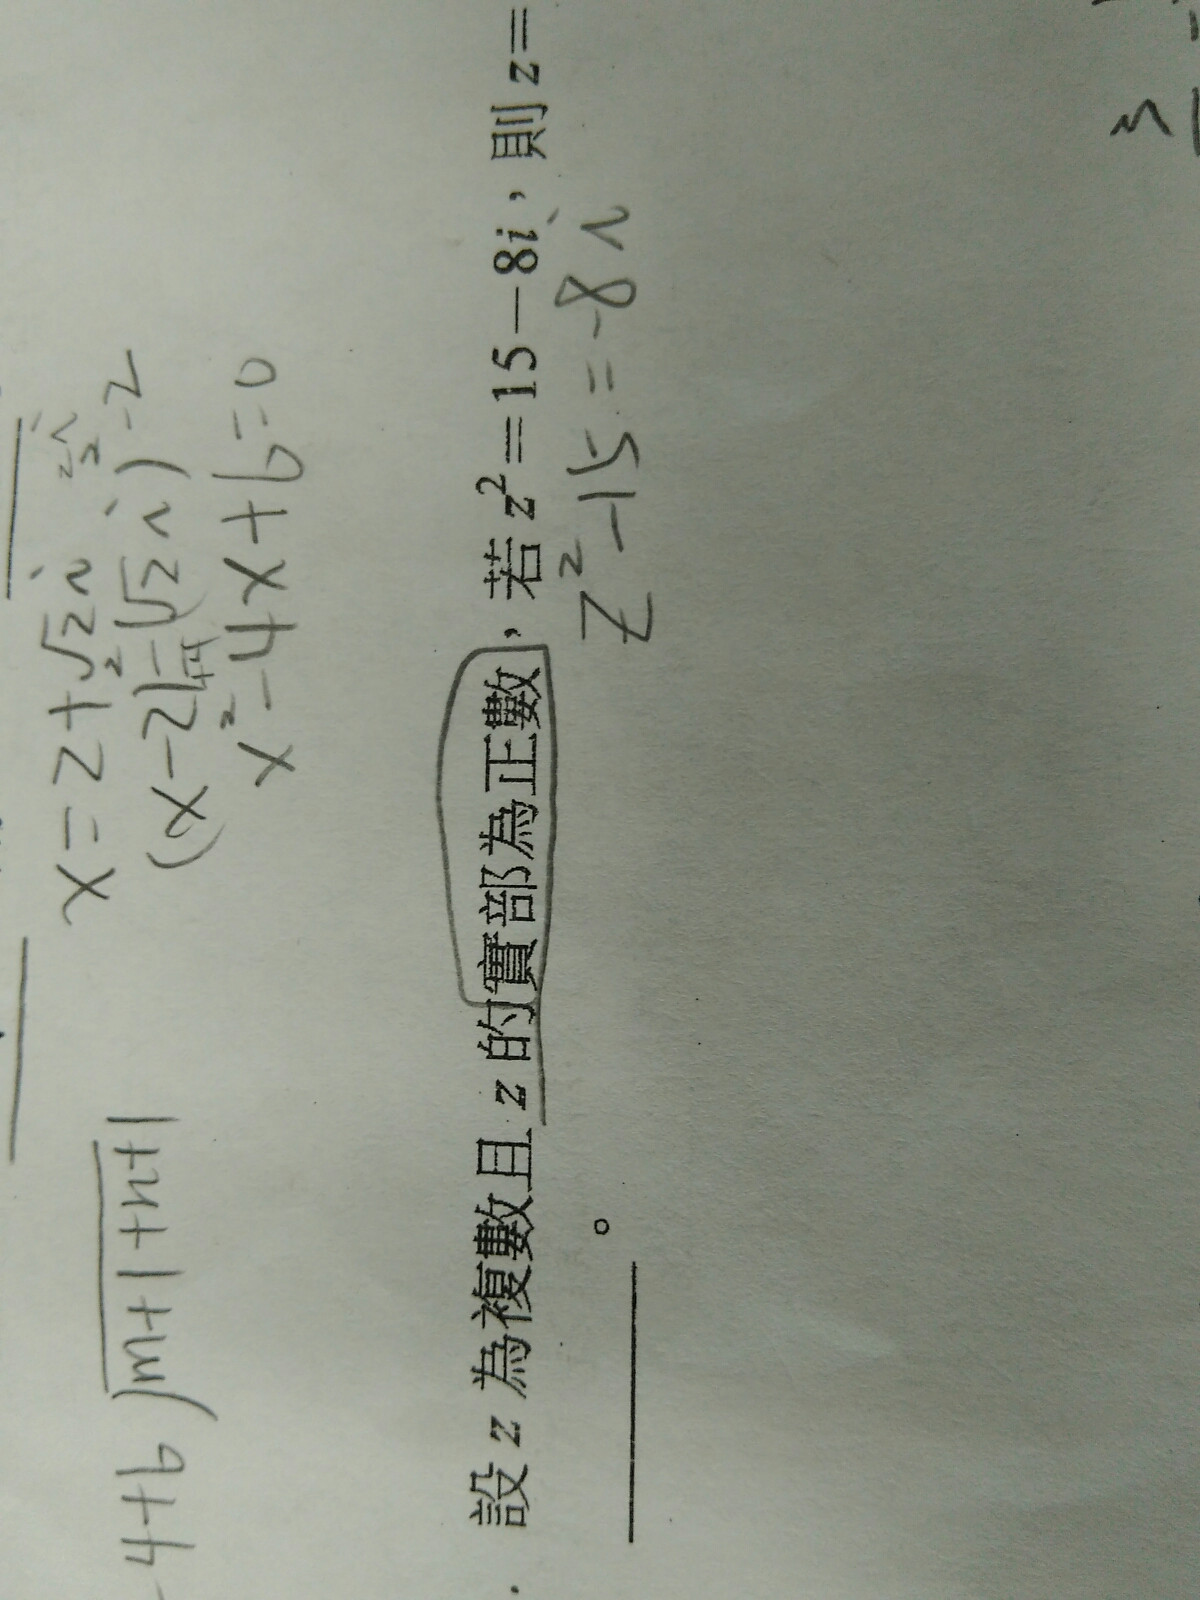 x=2+√2i
(x-2)²=(√2i)²
-2
x²-4x+6=0
(m+1+n+1
設 z 為複數且 z 的實部為正數，若 z²=15-8i，則 z=
。
z²-15=-8i